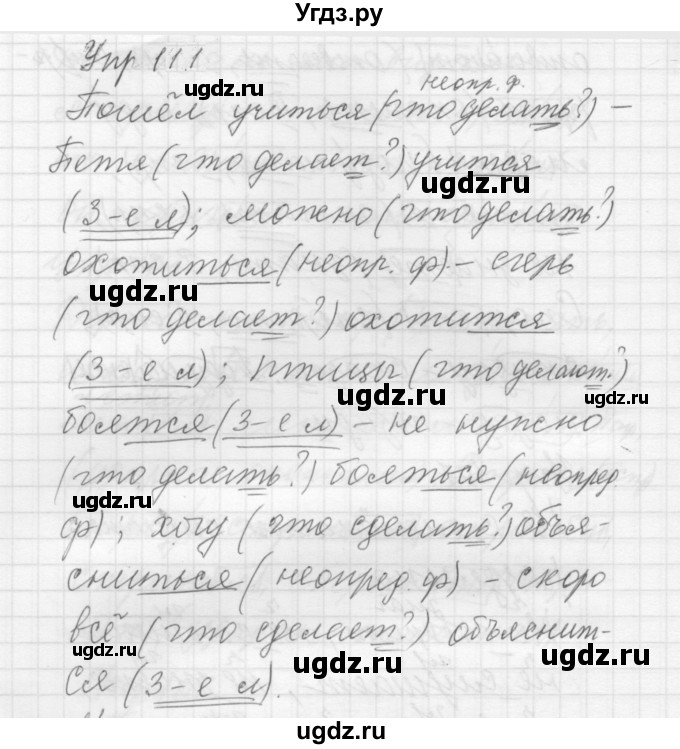 Угдз.ру
Упр 111
неопр. ф.
Пошёл учиться (что делать?) –
Петя (что делает?) учится
ugdz.ru
(3-е л); можно (что делать?)
охотиться (неопр. ф) – егерь
ugdz.ru
(что делает?) охотится
(3-е л); птицы (что делают?)
ugdz.ru ugdz.ru
боятся (3-е л) – не нужно
(что делать?) бояться (неопред
ugdz.ru
ф); хочу (что сделать?) объя-
сниться (неопред. ф) – скоро
ugdz.ru
всё (что сделает?) объяснит-
ugdz.ru
ся (3-е л).
ugdz.ru